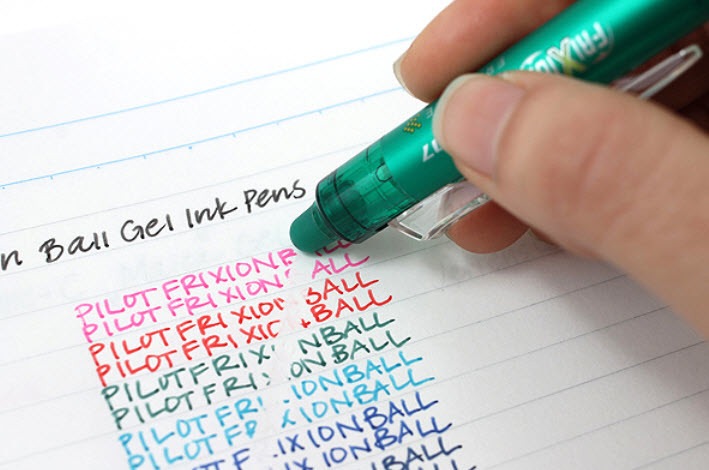 FRIXION
07
n Ball Gel Ink Pens
PILOT FRIXION B
PILOT FRIXION ALL
PILOT FRIXIO BALL
PILOT FRIXIO BALL
PILOT FRIX NBALL
PILOT FRI ON BALL
PILOT FRI IONBALL
PILOT FR XIONBALL
IXIONBALL
IXIONBALL